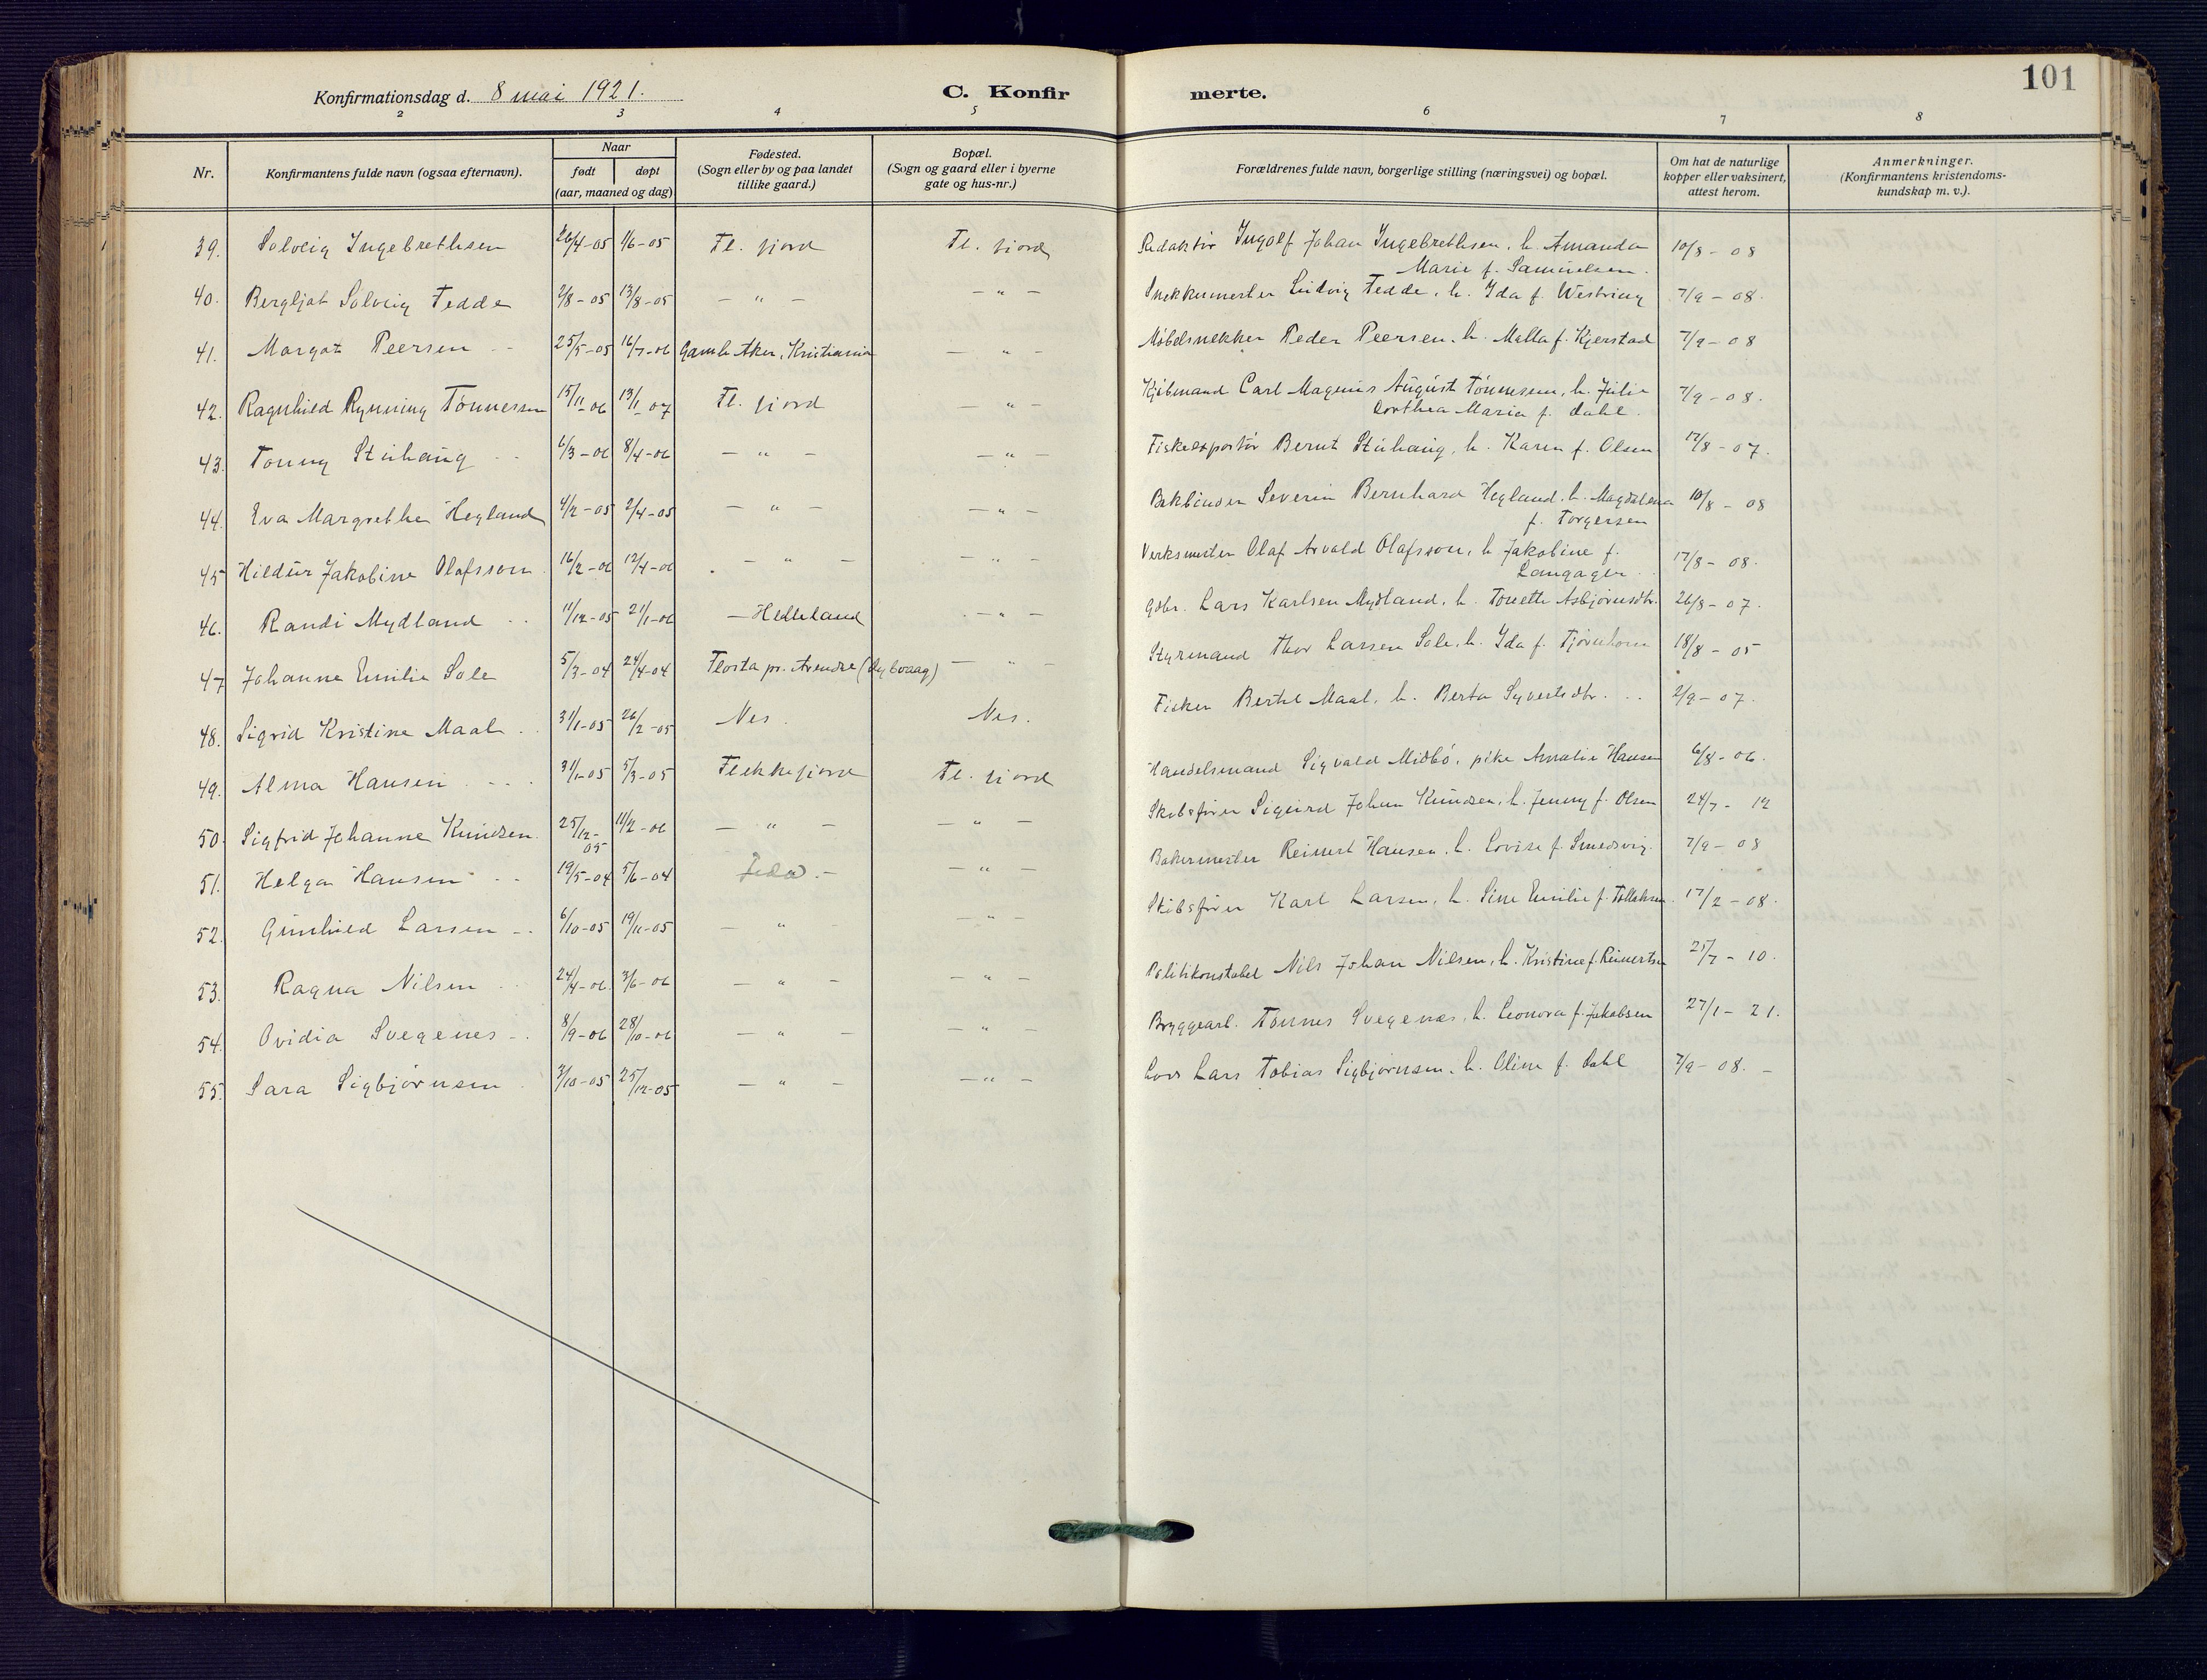 101
Konfirmationsdag d. 8 mai 1921.
C. Konfirmerte.
2 3 4 5 6 7 8
Nr.
Konfirmantens fulde navn (ogsaa efternavn).
Naar
født døpt
(aar, maaned og dag)
Fødested.
(Sogn eller by og paa landet
tillike gaard.)
Bopæl.
(Sogn og gaard eller i byerne
gate og hus-nr.)
Forældrenes fulde navn, borgerlige stilling (næringsvei) og bopæl.
Om hat de naturlige
kopper eller vaksinert,
attest herom.
Anmerkninger.
(Konfirmantens kristendoms-
kundskap m. v.).
39. Solveig Ingebrethsen 26/4-05 1/6-05 Fl. fjord Fl. fjord Redaktør Ingolf Johan Ingebrethsen, h. Amanda 10/8-08
Marie f. Samuelsen.
40. Bergljot Solveig Tedde 2/8-05 13/8-05 - " - - " - Snekkermester Ludvig Tedde, h. Ida f. Westring 7/9-08.
41. Margot Peersen 25/5-05 16/7-06 Gamle Aker, Kristiania - " - Møbelsnekker Peder Peersen, h. Malla f. Kjerstad 7/9-08
42. Ragnhild Rynning Tønnessen 15/11-06 13/1-07 Fl. fjord - " - Kjøbmand Carl Magnus August Tønnesen, h. Julie 7/9-08.
Dorthea Maria f. Dahl.
43. Tonny Stuhaug 6/3-06 8/4-06 - " - - " - Fiskeexportør Bernt Stuhaug, h. Karen f. Olsen 12/8-07.
44. Eva Margrethe Hegland 4/2-05 2/4-05 - " - - " - Bokbinder Severin Bernhard Hegland, h. Magdalena 10/8-08
f. Torgersen
45 Hildur Jakobine Olafsson 16/2-06 12/4-06 - " - - " - Verksmester Olaf Arvald Olafsson, h. Jakobine f. 17/8-08.
Langager.
46. Randi Mydland 11/12-05 21/1-06 - Helleland - " - Gdbr. Lars Karlsen Mydland, h. Tonette Asbjørnsdtr. 26/8-07.
47 Johanne Emilie Sole 5/3-04 24/4-04 Flosta pr. Arendal (Dybvaag) - " - Styrmand Thor Larsen Sole, h. Ida f. Tjørnhom 18/8-05
48. Sigrid Kristine Maal 31/1-05 26/2-05 Nes. Nes. Fisker Bertel Maal, h. Berta Syvertsdtr. 2/9-07.
49. Alma Hansen 31/1-05 5/3-05 Flekkefjord Fl. fjord Handelsmand Sigvald Midbø, pike Amalie Hansen 6/8-06.
50. Sigfrid Johanne Knudsen 25/12-05 11/2-06 - " - - " - Skibsfører Sigurd Johan Knudsen, h. Jenny f. Olsen 24/7-12
51. Helga Hansen 19/5-04 5/6-04 Feda. - " - Bakermester Reinert Hansen, h. Lovise f. Smedsvig. 7/9-08
52. Gunhild Larsen 6/10-05 19/11-05 - " - - " - Skibsfører Karl Larsen, h. Sine Emilie f. Tollaksen. 17/2-08.
53. Ragna Nilsen 24/4-06 3/6-06 - " - - " - Politikonstabel Nils Johan Nilsen, h. Kristine f. Reinertsen 25/7-10.
54. Ovidia Svegenes 8/9-06 28/10-06 - " - - " - Bryggearb. Tønnes Svegenæs, h. Leonora f. Jakobsen 27/1-21.
55. Sara Sigbjørnsen 3/10-05 25/12-05 - " - - " - Lods Lars Tobias Sigbjørnsen, h. Oline f. Dahl 7/9-08. -